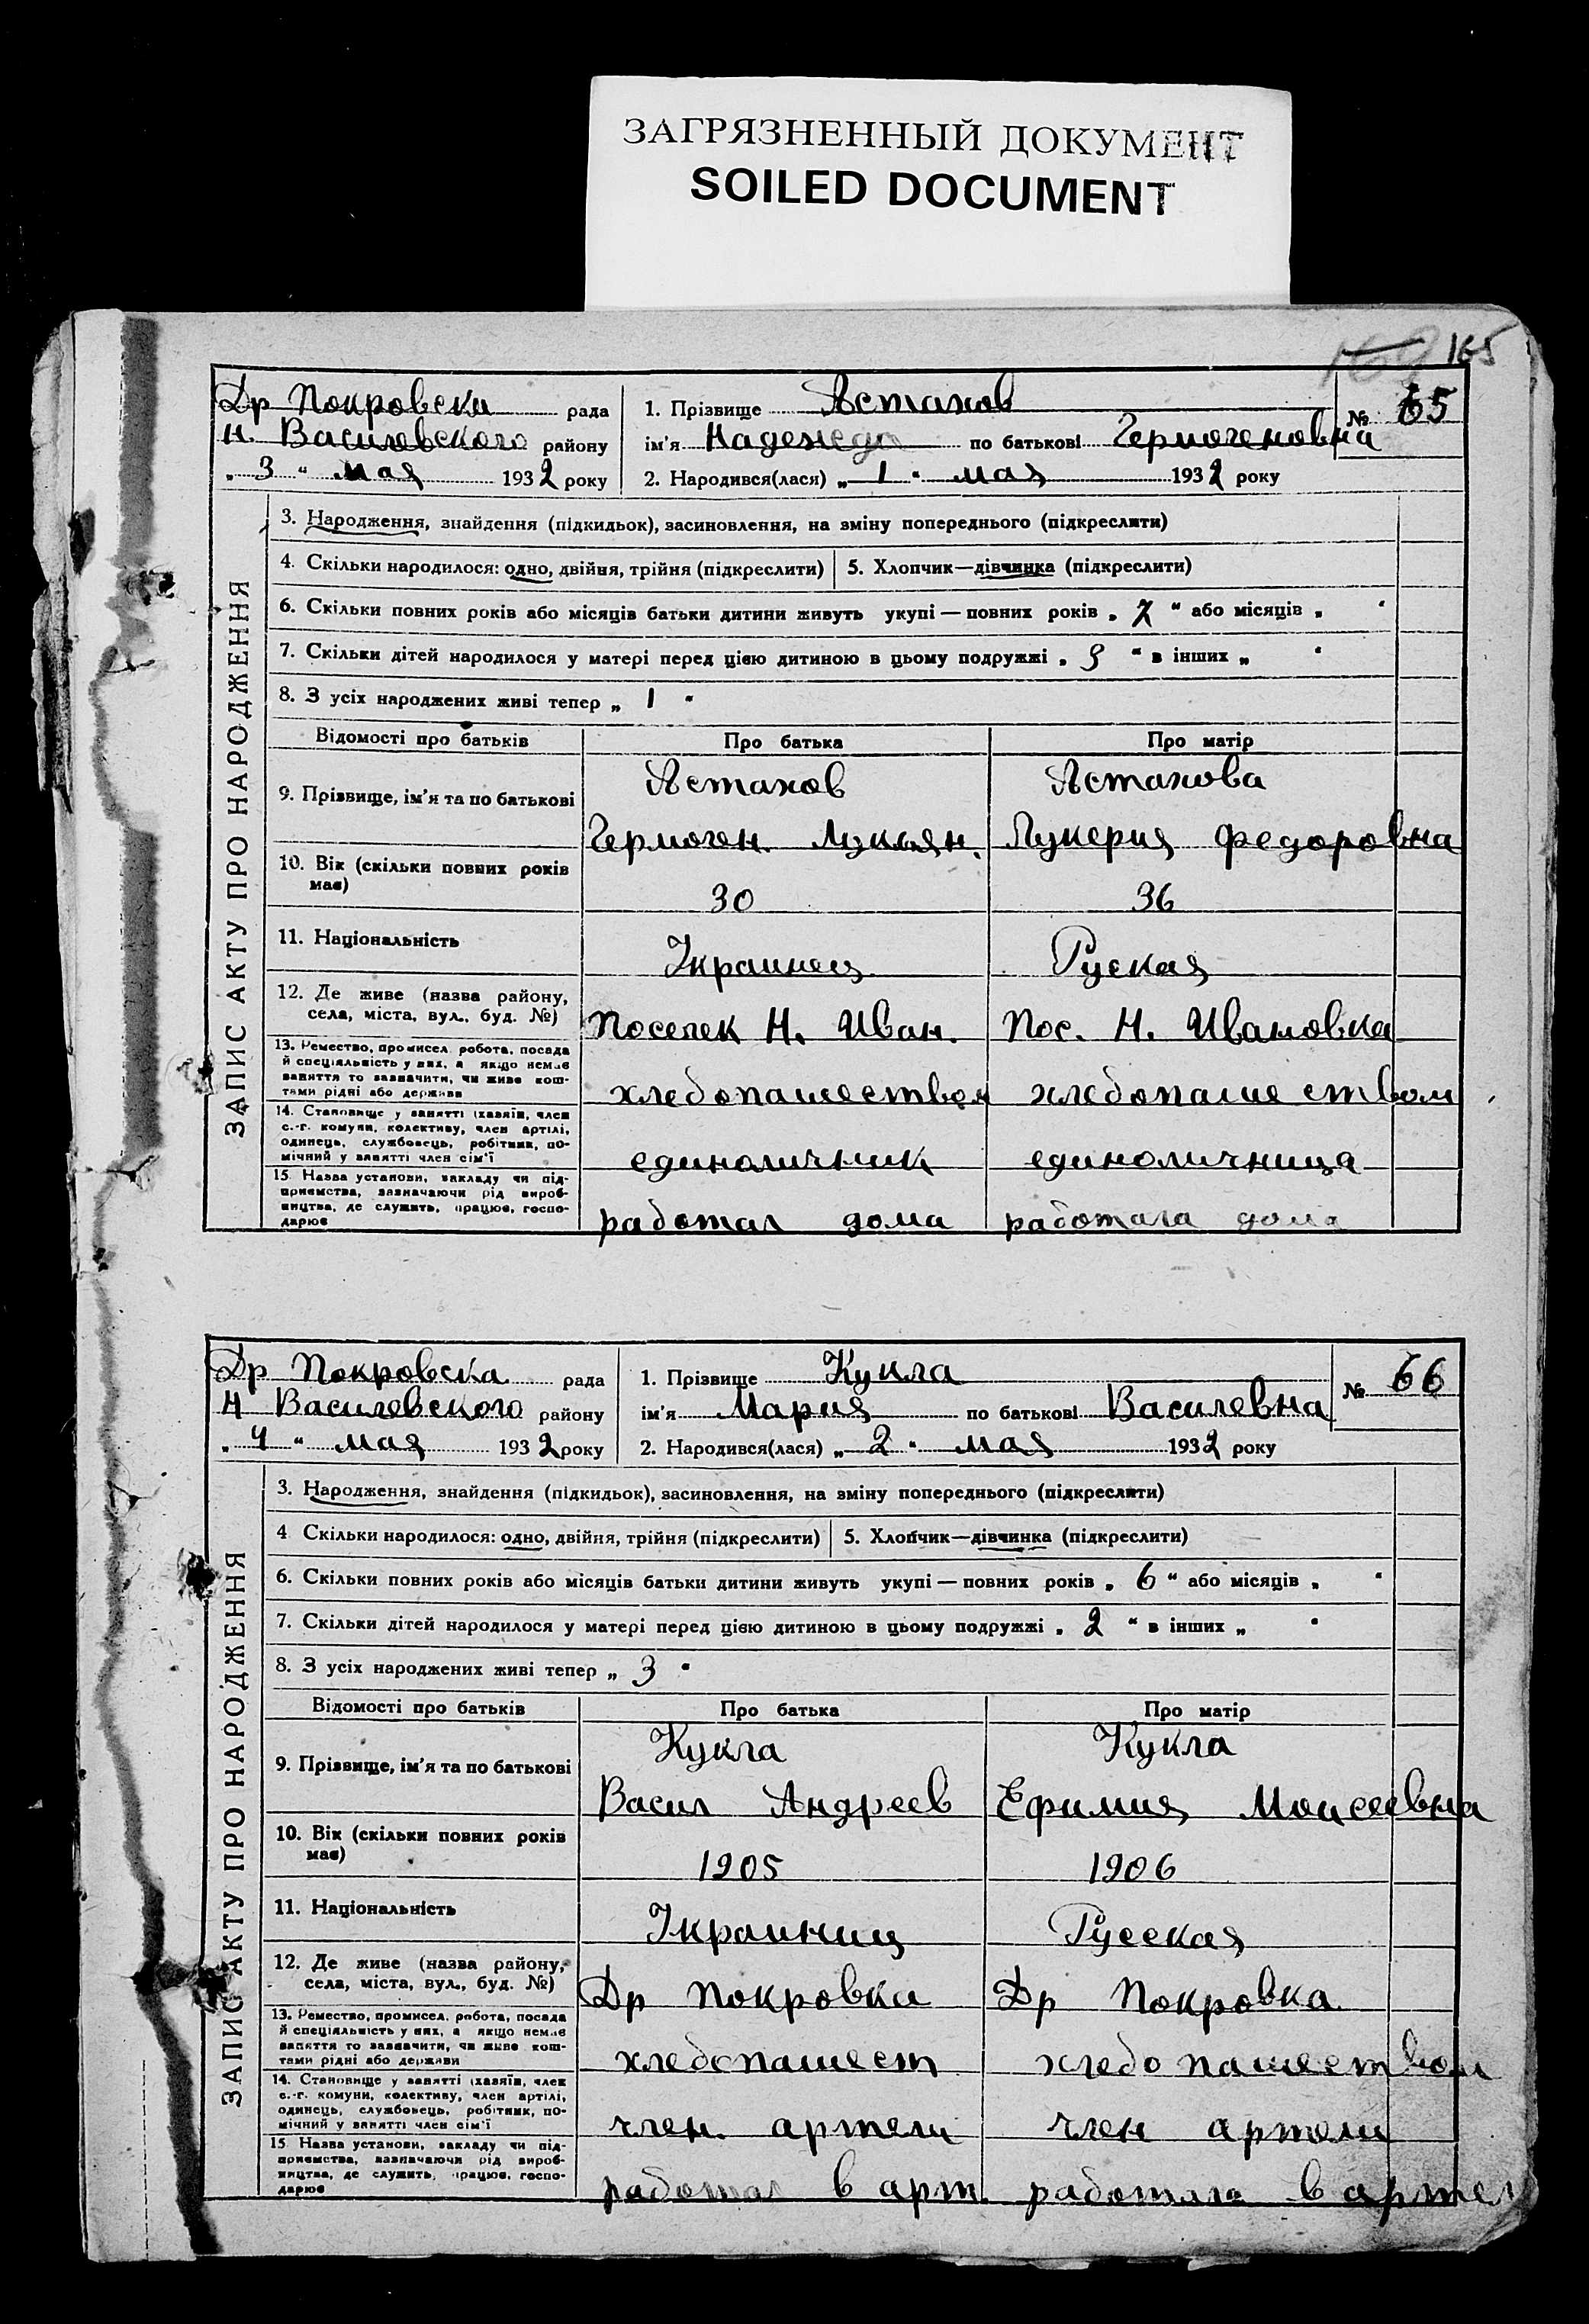 ЗАГРЯЗНЕННЫЙ ДОКУМЕНТ
SOILED DOCUMENT
165
Др Покровска рада
Н. Василевского району
„ 3 “ мая 1932 року
1. Прізвище Астахов
№ 65
ім'я Надежда по батькові Гермогеновна
2. Народився(лася) „ 1 “ мая 1932 року
ЗАПИС АКТУ ПРО НАРОДЖЕННЯ
3. Народження, знайдення (підкидьок), засиновлення, на зміну попереднього (підкреслити)
4. Скільки народилося: одно, двійня, трійня (підкреслити) 5. Хлопчик—дівчинка (підкреслити)
6. Скільки повних років або місяців батьки дитини живуть укупі — повних років „ 7 “ або місяців „ “
7. Скільки дітей народилося у матері перед цією дитиною в цьому подружжі „ “ в інших „ “
8. З усіх народжених живі тепер „ 1 “
Відомості про батьків Про батька Про матір
9. Прізвище, ім'я та по батькові
Астахов Астахова
Гермоген. Лукьян. Лукерия Федоровна
10. Вік (скільки повних років має)
30 36
11. Національність
Украинец Руская
12. Де живе (назва району, села, міста, вул., буд. №)
Поселек Н. Иван. Пос. Н. Ивановка
13. Ремество, промисел, робота, посада й спеціяльність у них, а якщо немає заняття то зазначити, чи живе коштами рідні або держави
хлебопашеством хлебопашеством
14. Становище у занятті (хазяїн, член с.-г. комуни, колективу, член артілі, одинець, службовець, робітник, помічний у занятті член сім'ї
единоличник единоличница
15. Назва установи, закладу чи підприємства, зазначаючи рід виробництва, де служить, працює, господарює
работал дома работала дома
Др Покровска рада
Н Василевского району
„ 4 “ мая 1932 року
1. Прізвище Кукла
№ 66
ім'я Мария по батькові Василевна
2. Народився(лася) „ 2 “ мая 1932 року
ЗАПИС АКТУ ПРО НАРОДЖЕННЯ
3. Народження, знайдення (підкидьок), засиновлення, на зміну попереднього (підкреслити)
4 Скільки народилося: одно, двійня, трійня (підкреслити) 5. Хлопчик—дівчинка (підкреслити)
6. Скільки повних років або місяців батьки дитини живуть укупі — повних років „ 6 “ або місяців „ “
7. Скільки дітей народилося у матері перед цією дитиною в цьому подружжі „ 2 “ в інших „ “
8. З усіх народжених живі тепер „ 3 “
Відомості про батьків Про батька Про матір
9. Прізвище, ім'я та по батькові
Кукла Кукла
Васил Андреев Ефимия Моисеевна
10. Вік (скільки повних років має)
1905 1906
11. Національність
Украиниц Русская
12. Де живе (назва району, села, міста, вул., буд. №)
Др Покровка Др Покровка
13. Ремество, промисел, робота, посада й спеціяльність у них, а якщо немає заняття то зазначити, чи живе коштами рідні або держави
хлебопашест хлебопашеством
14. Становище у занятті (хазяїн, член с.-г. комуни, колективу, член артілі, одинець, службовець, робітник, помічний у занятті член сім'ї
член. артели член артели
15 Назва установи, закладу чи підприємства, зазначаючи рід виробництва, де служить, працює, господарює
работал в арт. работала в артел